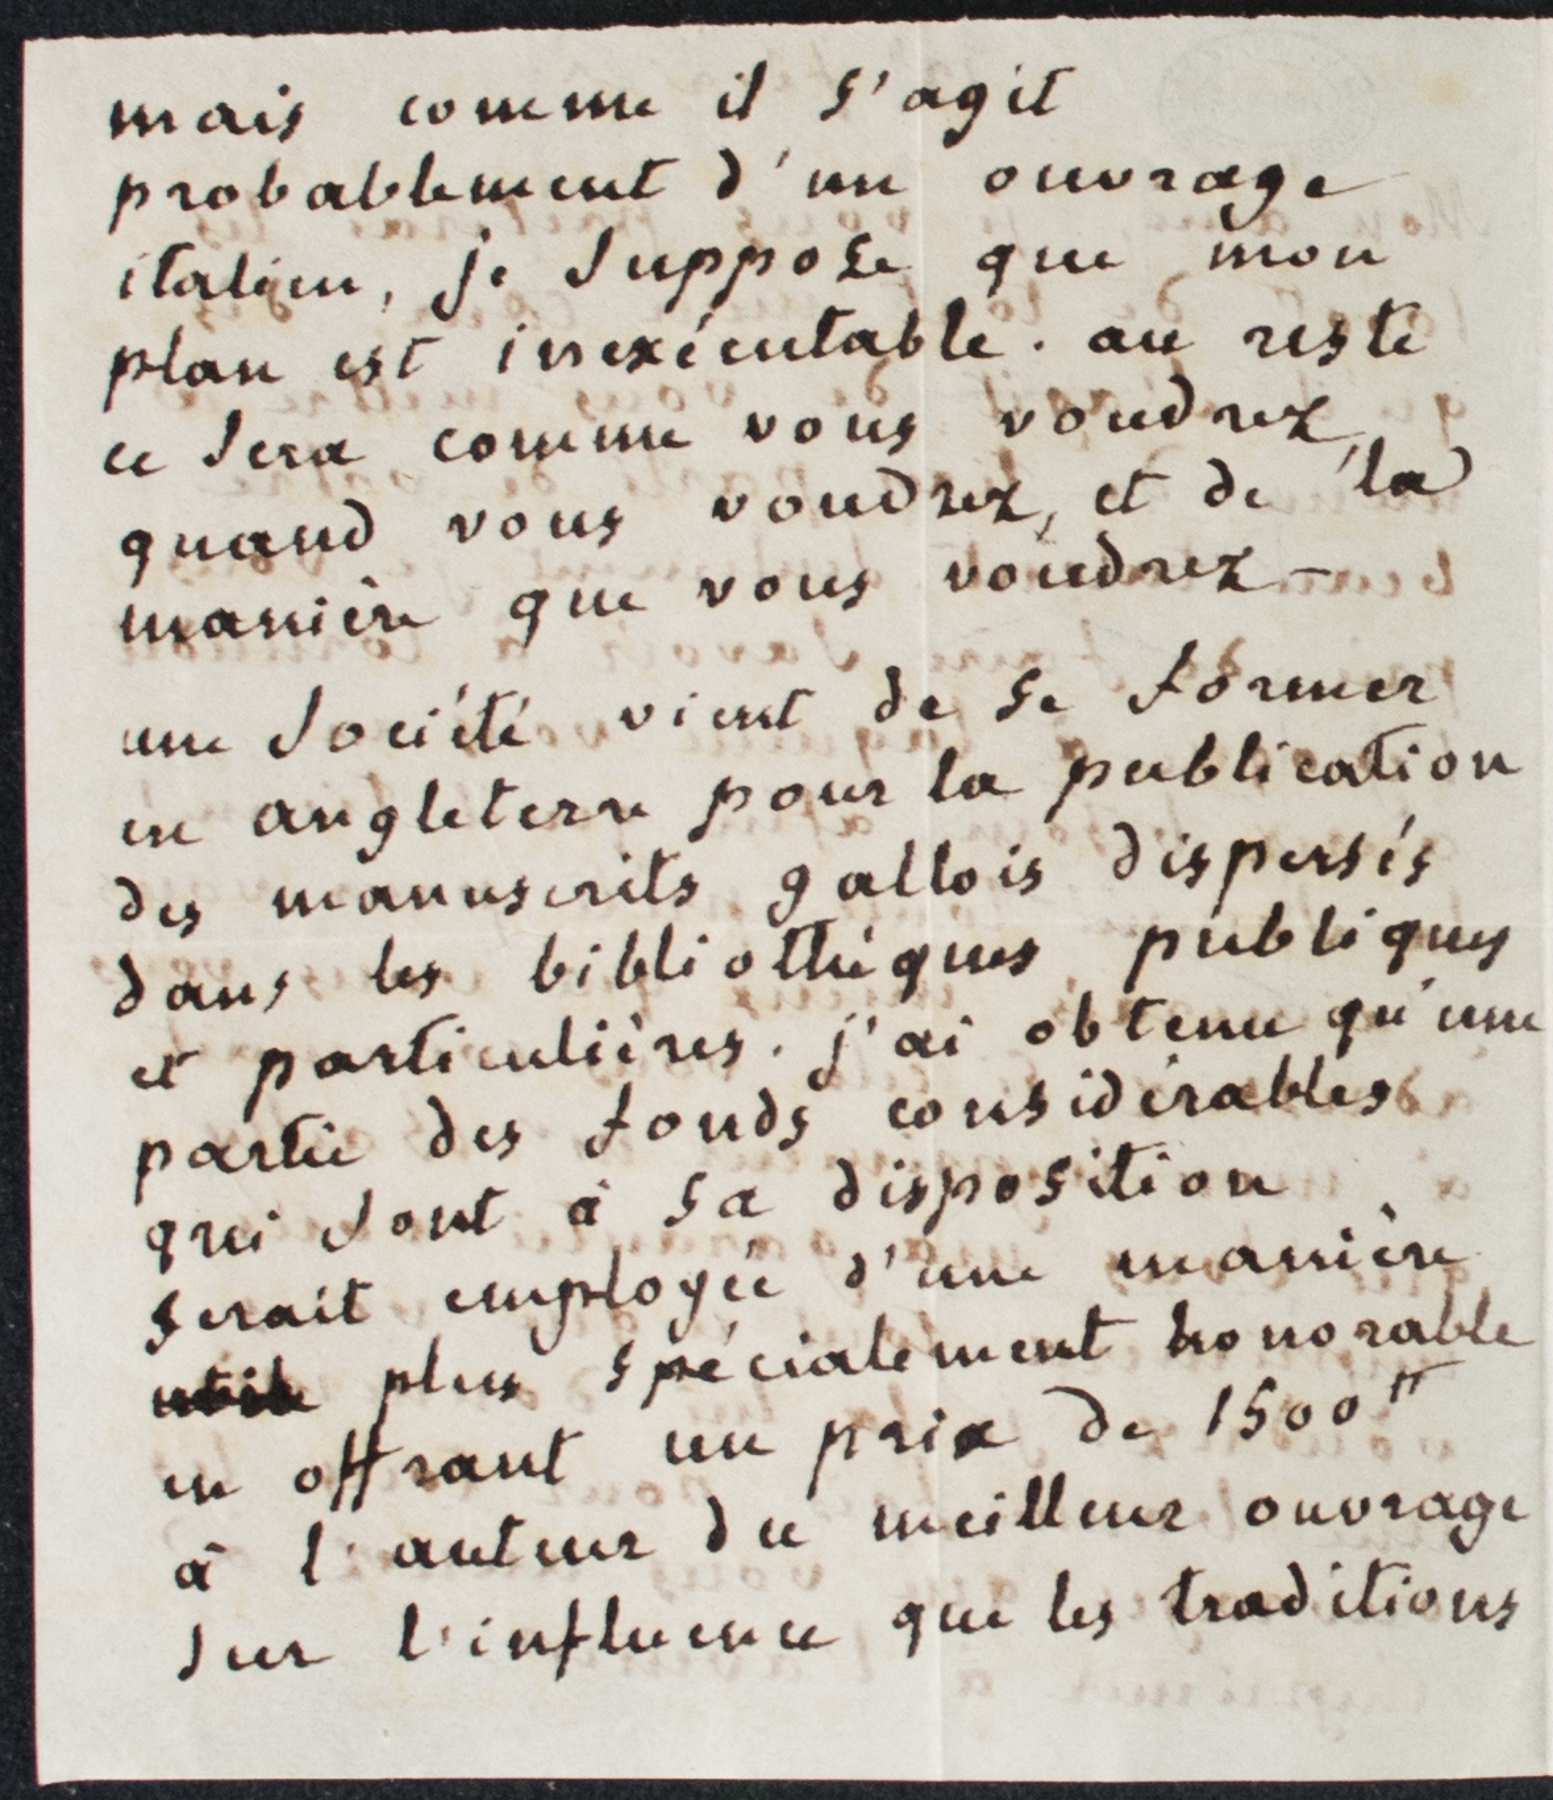 mais comme il s'agit
probablement d'un ouvrage
italien, je suppose que mon
plan est inexécutable. au reste
ce sera comme vous voudrez,
quand vous voudrez, et de la
manière que vous voudrez –
une société vient de se former
en angleterre pour la publication
des manuscrits gallois dispersés
dans les bibliothèques publiques
et particulières. j'ai obtenu qu'une
partie des fonds considérables
qui sont à sa disposition
serait employée d'une manière
plus spécialement honorable
en offrant un prix de 1500 ₶
à l'auteur du meilleur ouvrage
sur l'influence que les traditions